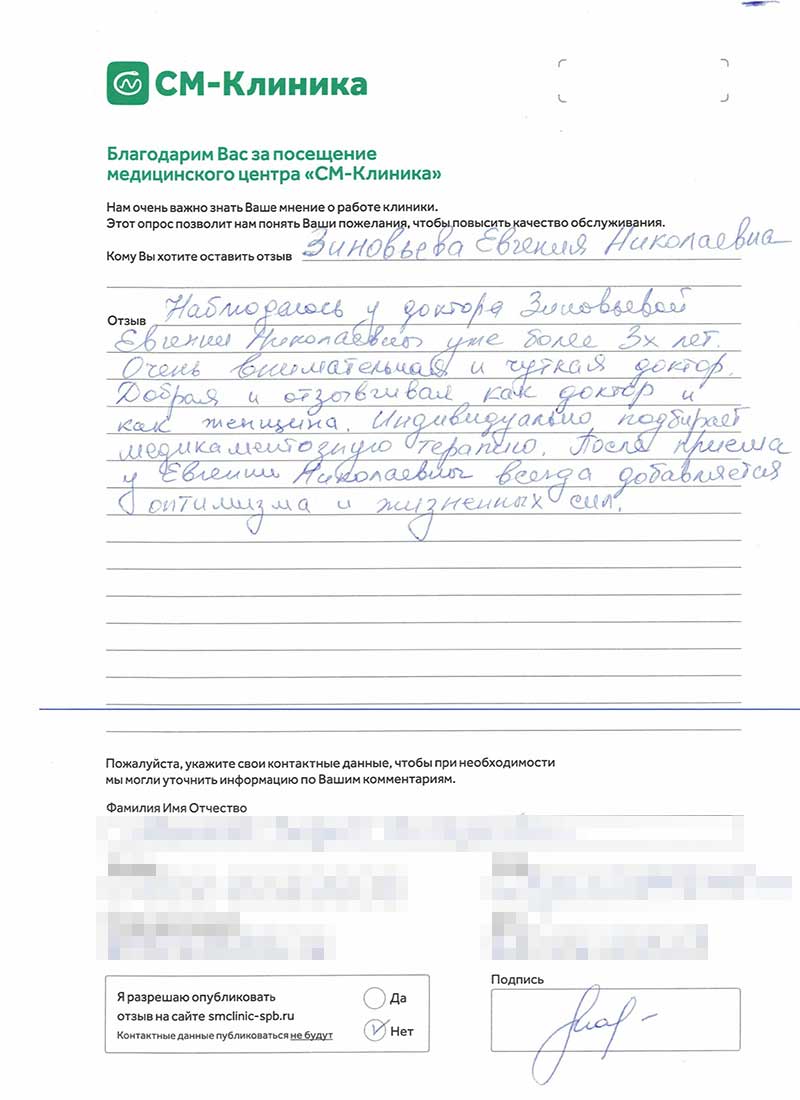 СМ-Клиника
Благодарим Вас за посещение
медицинского центра «СМ-Клиника»
Нам очень важно знать Ваше мнение о работе клиники.
Этот опрос позволит нам понять Ваши пожелания, чтобы повысить качество обслуживания.
Кому Вы хотите оставить отзыв Зиновьева Евгения Николаевна
Отзыв Наблюдаюсь у доктора Зиновьевой
Евгении Николаевны уже более 3х лет.
Очень внимательная и чуткая доктор.
Добрая и отзывчивая как доктор и
как женщина. Индивидуально подбирает
медикаментозную терапию. После приема
у Евгении Николаевны всегда добавляется
оптимизма и жизненных сил.
Пожалуйста, укажите свои контактные данные, чтобы при необходимости
мы могли уточнить информацию по Вашим комментариям.
Фамилия Имя Отчество
Подпись
Я разрешаю опубликовать
отзыв на сайте smclinic-spb.ru
Контактные данные публиковаться не будут
Да
Нет